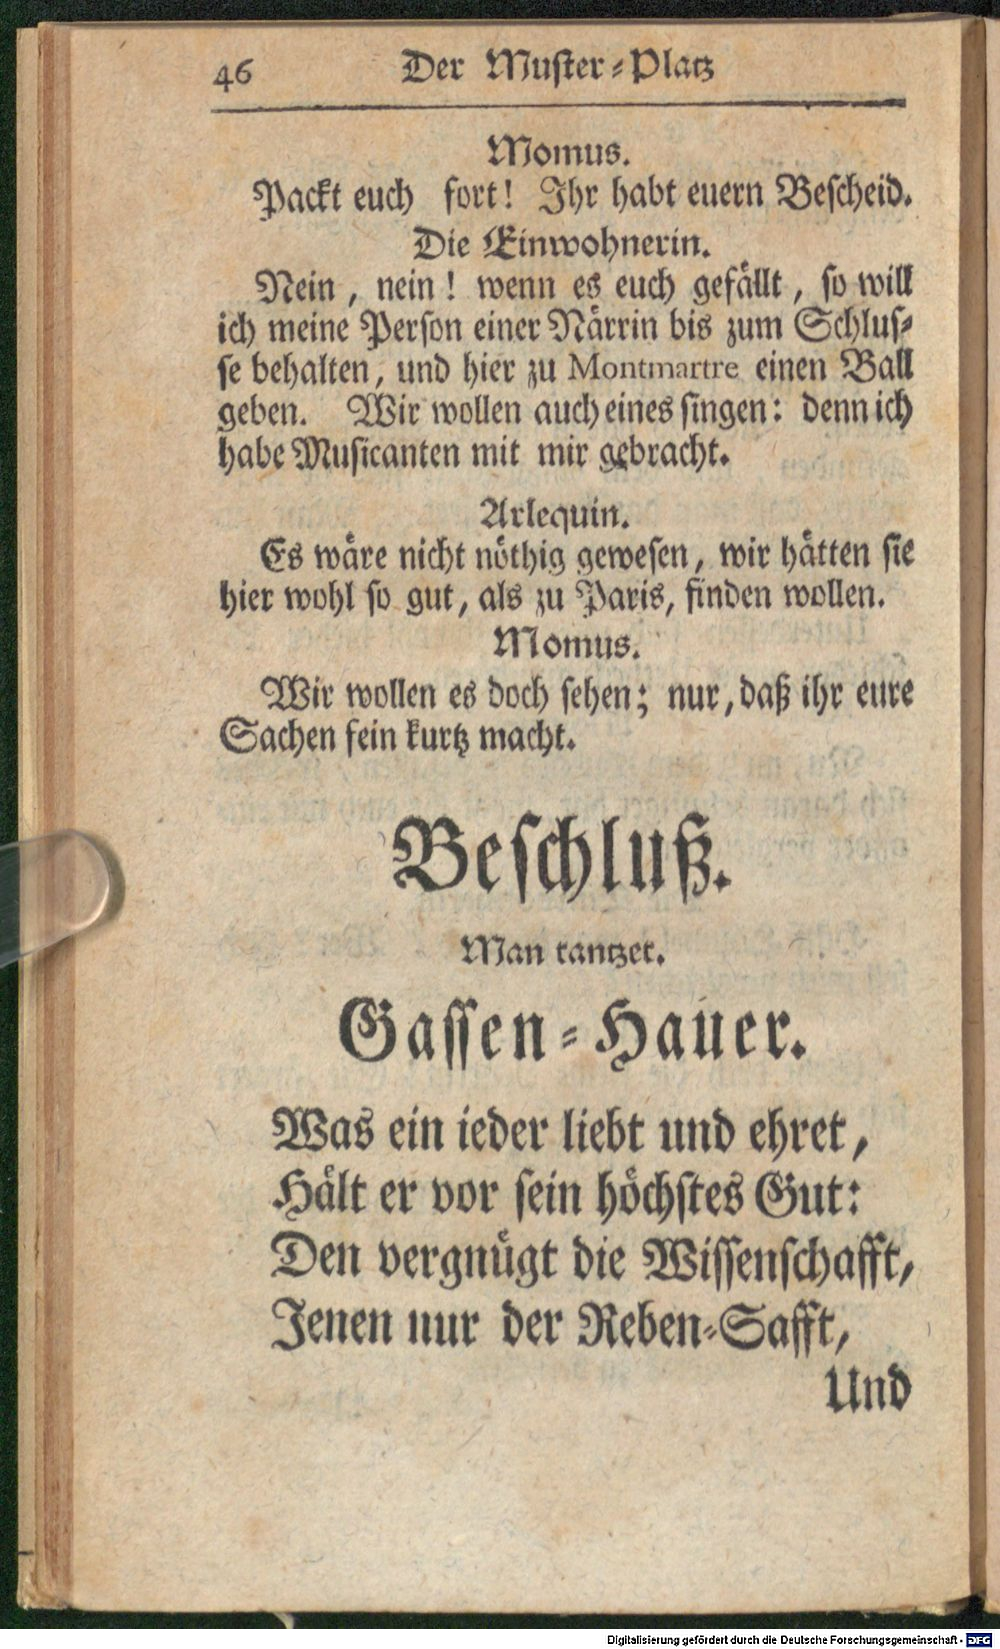 46 Der Muster-Platz
Momus.
Packt euch fort! Ihr habt euern Bescheid.
Die Einwohnerin.
Nein, nein! wenn es euch gefällt, so will
ich meine Person einer Närrin bis zum Schlus-
se behalten, und hier zu Montmartre einen Ball
geben. Wir wollen auch eines singen: denn ich
habe Musicanten mit mir gebracht.
Arlequin.
Es wäre nicht nöthig gewesen, wir hätten sie
hier wohl so gut, als zu Paris, finden wollen.
Momus.
Wir wollen es doch sehen; nur, daß ihr eure
Sachen fein kurtz macht.
Beschluß.
Man tantzet.
Gassen-Hauer.
Was ein ieder liebt und ehret,
Hält er vor sein höchstes Gut:
Den vergnügt die Wissenschafft,
Jenen nur der Reben-Safft,
Und
Digitalisierung gefördert durch die Deutsche Forschungsgemeinschaft - DFG